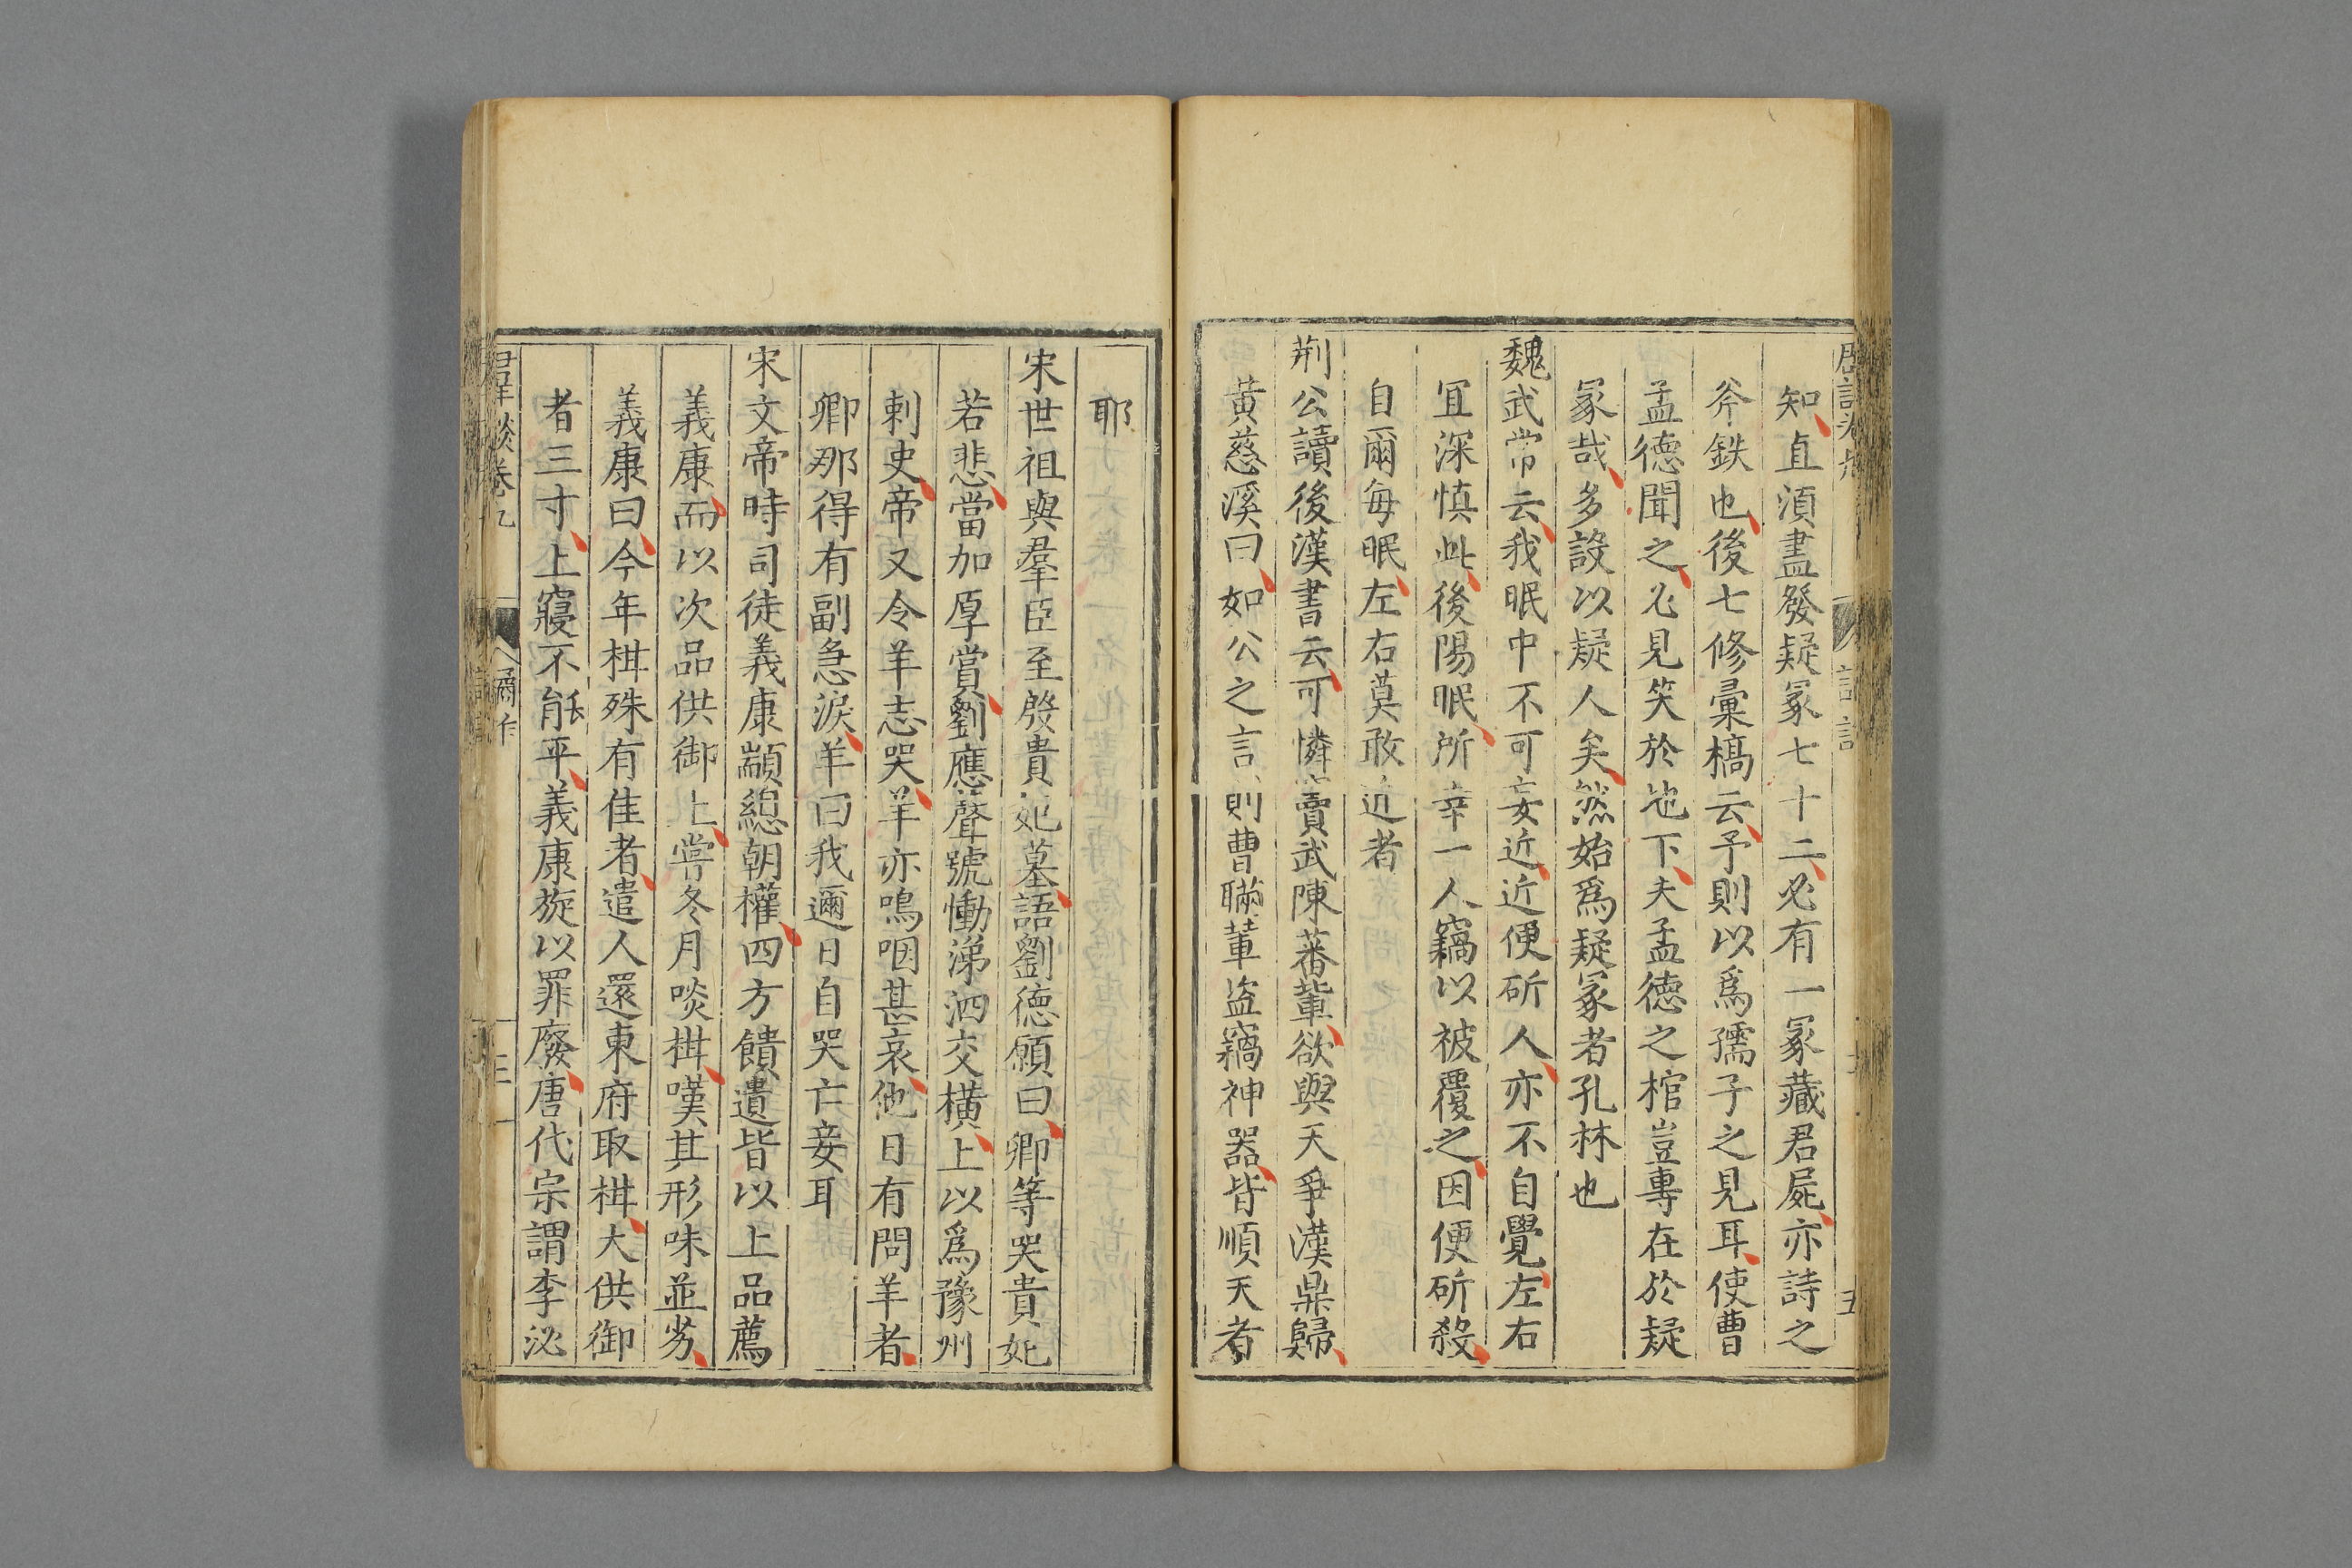 知直須盡發疑冢七十二必有一冢藏君屍亦詩之
斧鉄也後七修彙稿云予則以爲孺子之見耳使曹
孟德聞之必見笑於地下夫孟德之棺豈專在於疑
冢哉多設以疑人矣然始爲疑冢者孔林也
魏武常云我眠中不可妄近近便斫人亦不自覺左右
宜深慎此後陽眠所幸一人竊以被覆之因便斫殺
自爾每眠左右莫敢近者
荆公讀後漢書云可憐竇武陳蕃輩欲與天爭漢鼎歸
黃慈溪曰如公之言則曹瞞輩盜竊神器皆順天者
耶
宋世祖與羣臣至殷貴妃墓語劉德願曰卿等哭貴妃
若悲當加厚賞劉應聲號慟涕泗交橫上以爲豫州
刺史帝又令羊志哭羊亦鳴咽甚哀他日有問羊者
卿那得有副急淚羊曰我邇日自哭亡妾耳
宋文帝時司徒義康顓總朝權四方饋遺皆以上品薦
義康而以次品供御上嘗冬月啖柑嘆其形味並劣
義康曰今年柑殊有佳者遣人還東府取柑大供御
者三寸上寢不能平義康旋以罪廢唐代宗謂李泌
羣談卷九